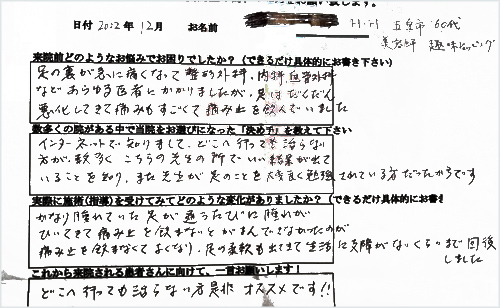 日付 2022年 12月 お名前 H.H 五泉市 60代
美容師 趣味ヨッピング
来院前どのようなお悩みでお困りでしたか?(できるだけ具体的にお書き下さい)
足の裏が急に痛くなって整形外科、内科、血管外科
などあらゆる医者にかかりましたが、足はだんだん
悪化してきて痛みもすごくて痛み止を飲んでいました
数多くの院がある中で当院をお選びになった「決め手」を教えて下さい
インターネットで知りまして、どこへ行っても治らない
方が数多くこちらの先生の所でいい結果が出て
いることを知り、また先生が足のことを大変良く勉強されている方だったからです
実際に施術(指導)を受けてみてどのような変化がありましたか?(できるだけ具体的にお書き
かなり腫れていた足が通うたびに腫れが
ひいてきて痛み止を飲まないとがまんできなかったのが
痛み止を飲まなくてよくなり、足の柔軟も出てきて生活に支障がないくらいまで回復
しました
これから来院される患者さんに向けて、一言お願いします!
どこへ行っても治らない方是非オススメです!!